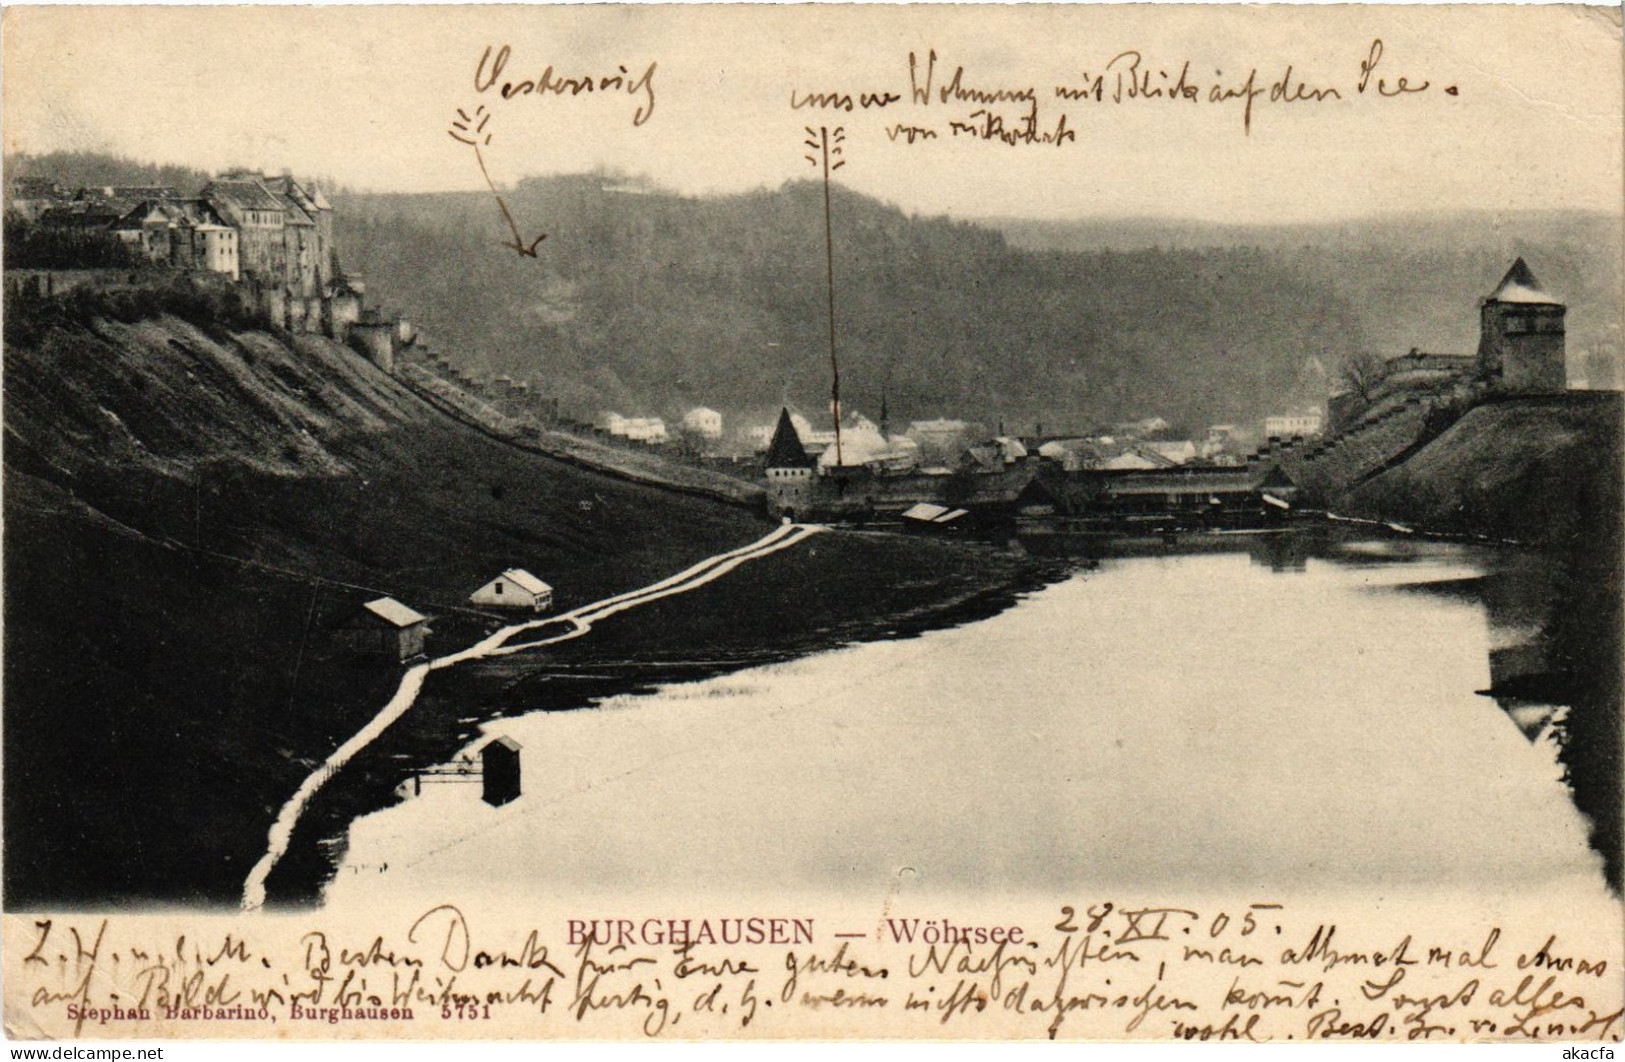 Oesterreich
unsere Wohnung mit Blick auf den See.
von rückwärts
BURGHAUSEN — Wöhrsee
28.XI.05.
L. W. u. l. M. Besten Dank für Eure guten Nachrichten, man athmet mal etwas
auf. Bild wird bis Weihnacht fertig, d. h. wenn nichts dazwischen kom̄t. Sonst alles
Stephan Barbarino, Burghausen 5751
wohl. Best. Gr. v.
akacfa